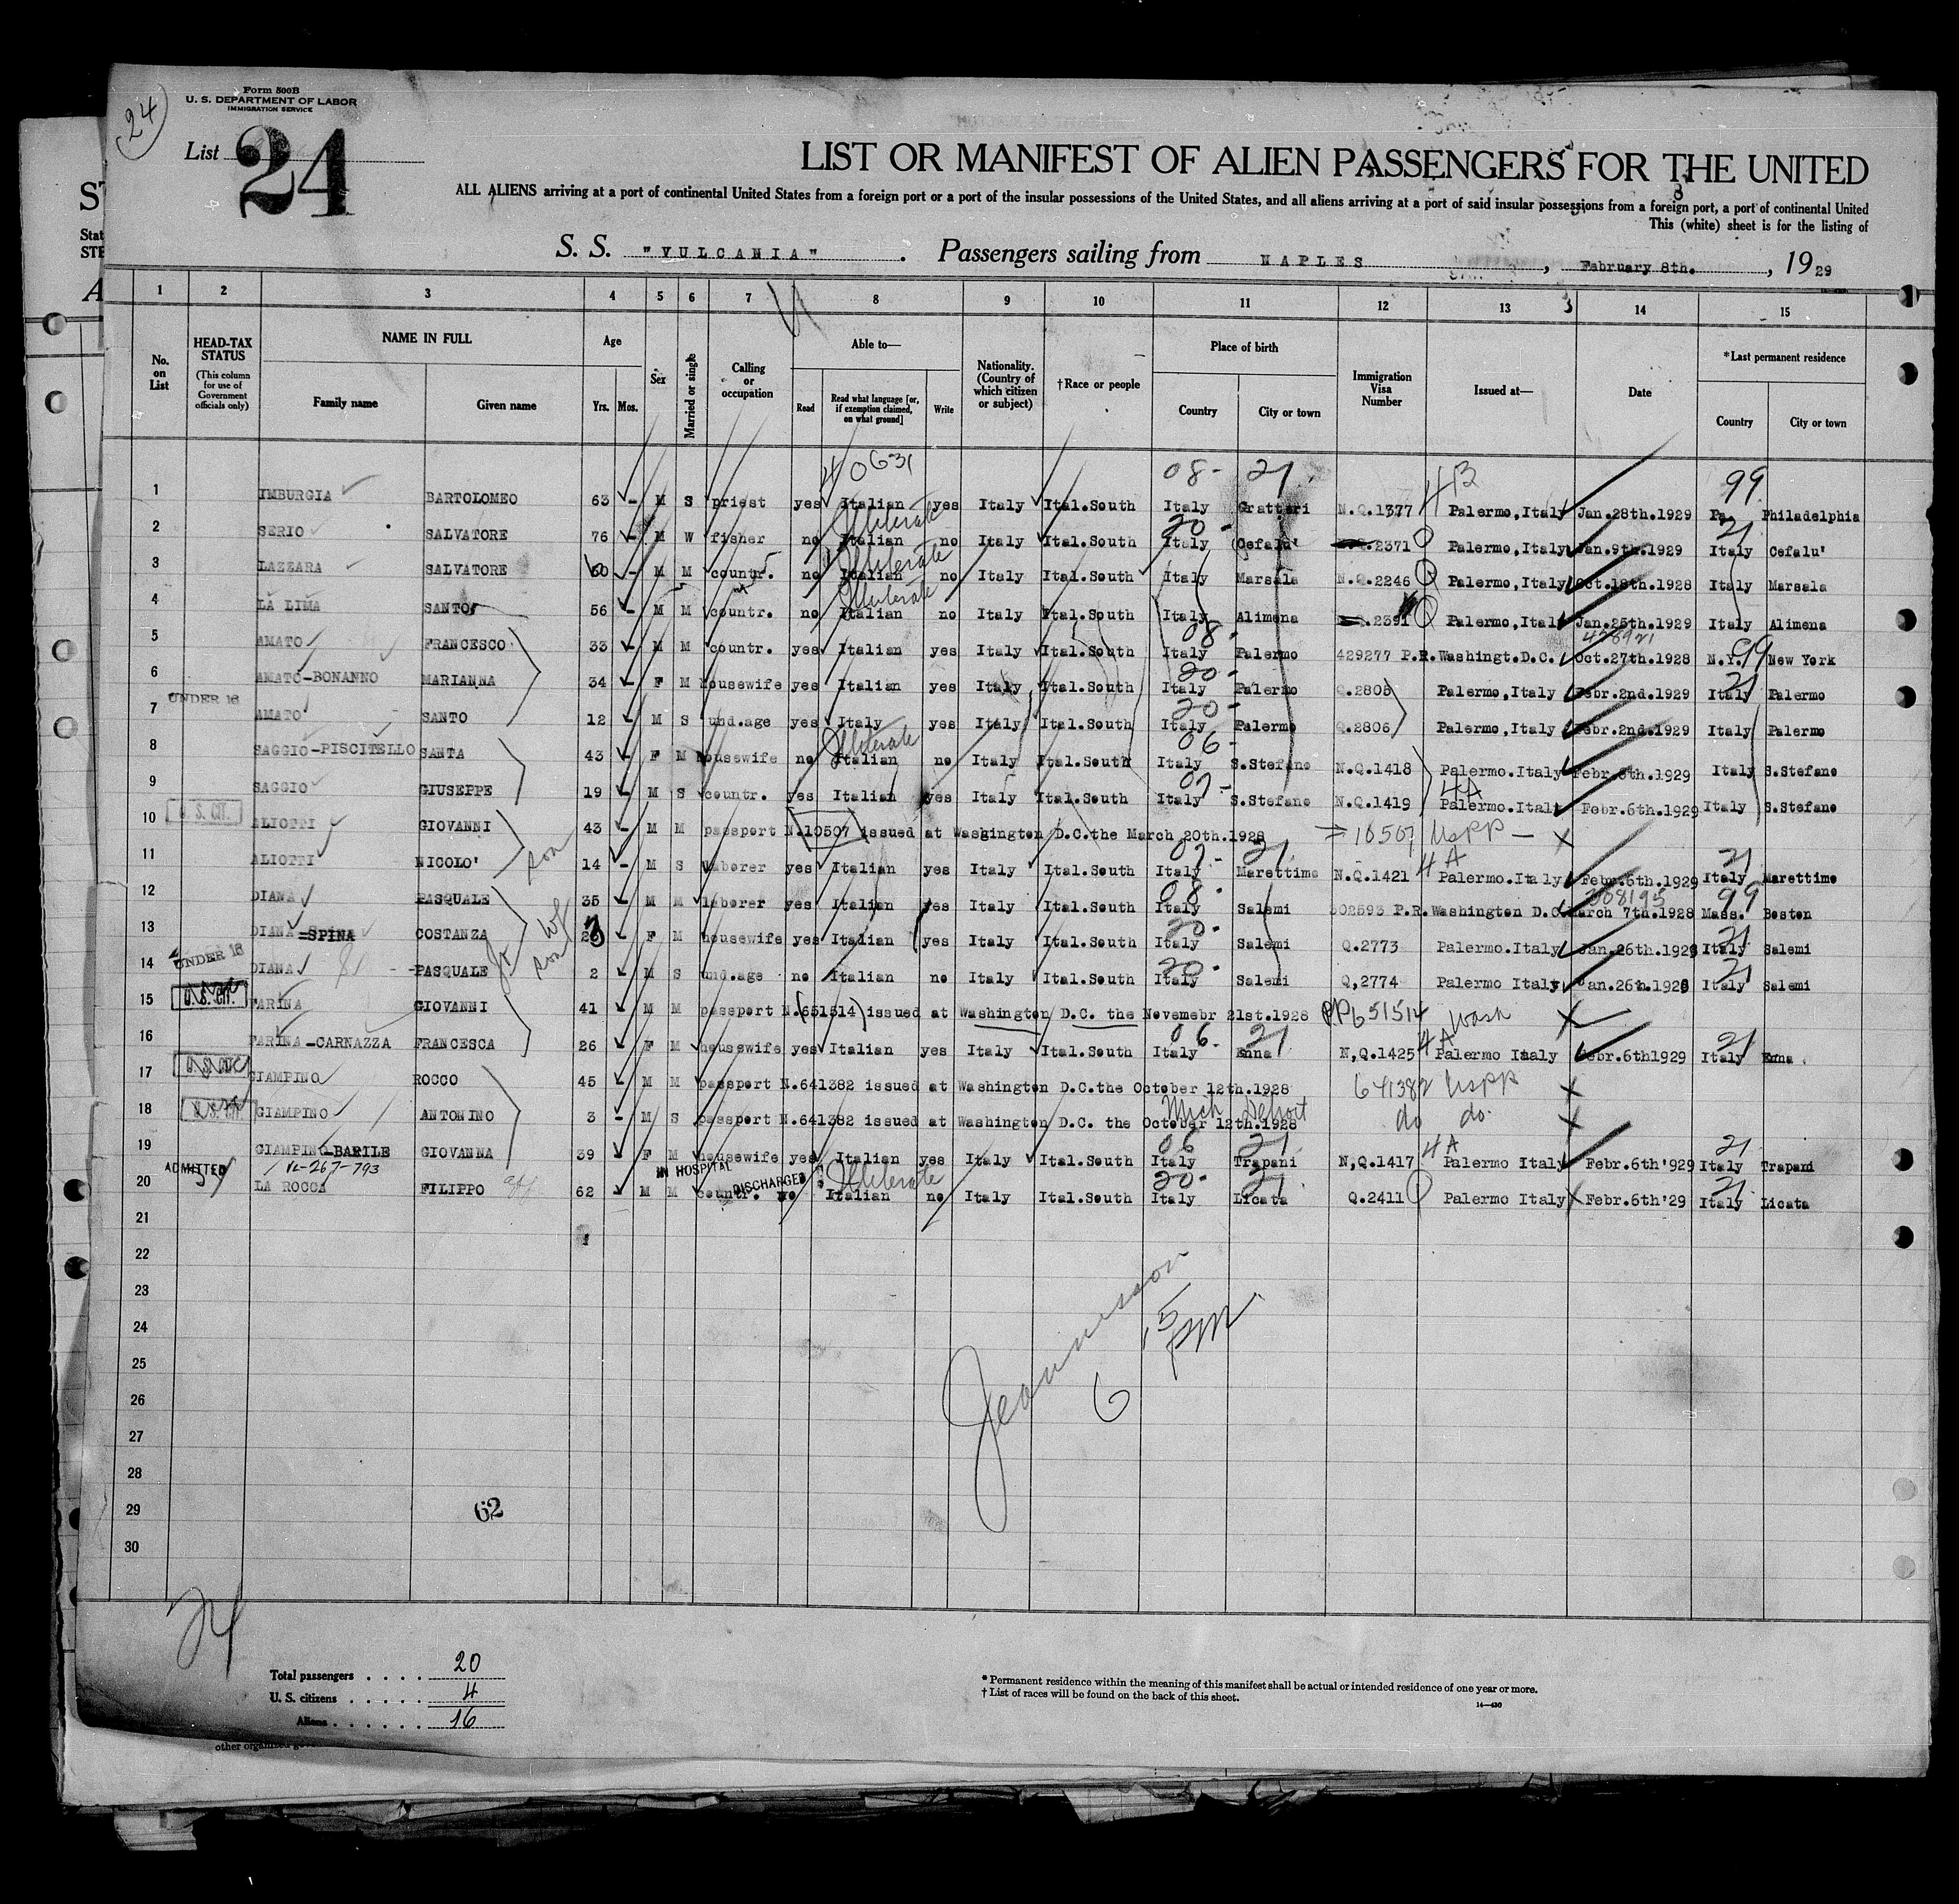 24
Form 500B
U. S. DEPARTMENT OF LABOR
IMMIGRATION SERVICE
List 24
LIST OR MANIFEST OF ALIEN PASSENGERS FOR THE UNITED
ALL ALIENS arriving at a port of continental United States from a foreign port or a port of the insular possessions of the United States, and all aliens arriving at a port of said insular possessions from a foreign port, a port of continental United
This (white) sheet is for the listing of
S. S. "VULCANIA" . Passengers sailing from NAPLES , February 8th. , 1929
1 2 3 4 5 6 7 8 9 10 11 12 13 14 15
No. on List HEAD-TAX STATUS (This column for use of Government officials only) NAME IN FULL Family name Given name Age Yrs. Mos. Sex Married or single Calling or occupation Able to— Read Read what language [or, if exemption claimed, on what ground] Write Nationality. (Country of which citizen or subject) †Race or people Place of birth Country City or town Immigration Visa Number Issued at— Date *Last permanent residence Country City or town
08- 21 4B 99
1 IMBURGIA BARTOLOMEO 63 - M S priest yes Italian yes Italy Ital.South Italy Grattari N.Q.1377 Palermo,Italy Jan.28th.1929 Pa. Philadelphia
Illiterate 20- 21
2 SERIO SALVATORE 76 - M W fisher no Italian no Italy Ital.South Italy Cefalu' .2371 Palermo,Italy Jan.9th.1929 Italy Cefalu'
Illiterate
3 LAZZARA SALVATORE 50 - M M countr. no Italian no Italy Ital.South Italy Marsala N.Q.2246 Palermo,Italy Oct.18th.1928 Italy Marsala
Illiterate
4 LA LIMA SANTO 56 - M M countr. no Italian no Italy Ital.South Italy Alimena .2391 Palermo,Italy Jan.25th.1929 Italy Alimena
08- 99
5 AMATO FRANCESCO 33 - M M countr. yes Italian yes Italy Ital.South Italy Palermo 429277 P.R. Washingt.D.C. Oct.27th.1928 N.Y. New York
20- 21
6 AMATO-BONANNO MARIANNA 34 - F M housewife yes Italian yes Italy Ital.South Italy Palermo Q.2805 Palermo,Italy Febr.2nd.1929 Italy Palermo
UNDER 16 20-
7 AMATO SANTO 12 - M S und.age yes Italy yes Italy Ital.South Italy Palermo Q.2806 Palermo,Italy Febr.2nd.1929 Italy Palermo
Illiterate 06-
8 SAGGIO-PISCITELLO SANTA 43 - F M housewife no Italian no Italy Ital.South Italy S.Stefano N.Q.1418 Palermo.Italy Febr.6th.1929 Italy S.Stefano
07- 4A
9 SAGGIO GIUSEPPE 19 - M S countr. yes Italian yes Italy Ital.South Italy S.Stefano N.Q.1419 Palermo.Italy Febr.6th.1929 Italy S.Stefano
U. S. CIT.
10 ALIOTTI GIOVANNI 43 - M M passport N.10507 issued at Washington D.C.the March 20th.1928 10507 USPP - X
son 07- 21 4A 21
11 ALIOTTI NICOLO' 14 - M S laborer yes Italian yes Italy Ital.South Italy Marettimo N.Q.1421 Palermo.Italy Febr.6th.1929 Italy Marettimo
08- 99
12 DIANA PASQUALE 35 M M laborer yes Italian yes Italy Ital.South Italy Salemi 302593 P.R. Washington D.C. March 7th.1928 Mass. Boston
wf 20- 21
13 DIANA=SPINA COSTANZA F M housewife yes Italian yes Italy Ital.South Italy Salemi Q.2773 Palermo.Italy Jan.26th.1929 Italy Salemi
UNDER 16 Jr son 20- 21
14 DIANA PASQUALE 2 - M S und.age no Italian no Italy Ital.South Italy Salemi Q,2774 Palermo Italy Jan.26th.1929 Italy Salemi
U. S. CIT.
15 FARINA GIOVANNI 41 - M M passport N.(651514) issued at Washington D.C. the Novemebr 21st.1928 PP651514 Wash X
06- 21 4A 21
16 FARINA-CARNAZZA FRANCESCA 26 - F M housewife yes Italian yes Italy Ital.South Italy Enna N,Q.1425 Palermo Italy Febr.6th1929 Italy Enna
17 GIAMPINO ROCCO 45 - M M passport N.641382 issued at Washington D.C.the October 12th.1928 641382 USPP X
U. S. CIT. Mich Detroit
18 GIAMPINO ANTONINO 3 - M S passport N.641382 issued at Washington D.C. the October 12th.1928 do do. X
06 21 4A 21
19 GIAMPINO-BARILE GIOVANNA 39 - F M housewife yes Italian yes Italy Ital.South Italy Trapani N,Q.1417 Palermo Italy Febr.6th'929 Italy Trapani
ADMITTED VL-267-793 IN HOSPITAL DISCHARGED Illiterate 20- 21 21
20 LA ROCCA FILIPPO 62 - M M countr. no Italian no Italy Ital.South Italy Licata Q.2411 Palermo Italy Febr.6th'29 Italy Licata
21
22
23
24
25
26
27
28
29
30
62
6
24
Total passengers . . . . 20
U. S. citizens . . . . . 4
Aliens . . . . . . 16
* Permanent residence within the meaning of this manifest shall be actual or intended residence of one year or more.
† List of races will be found on the back of this sheet.
14—430